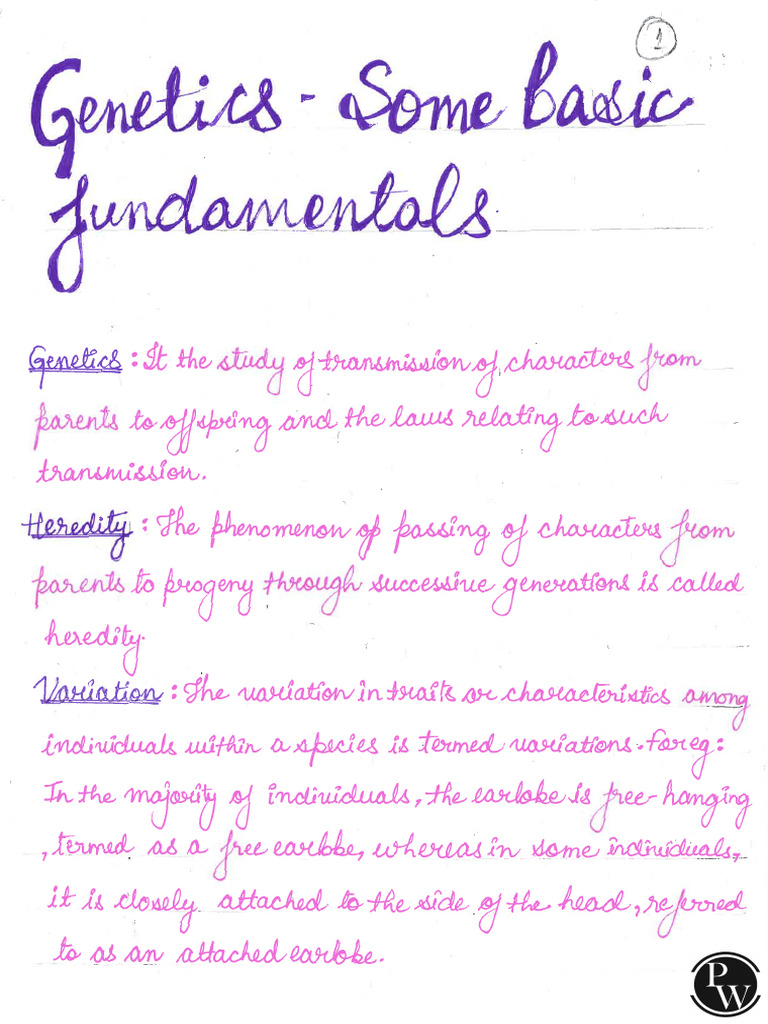 1
Genetics - Some basic
fundamentals
Genetics : It the study of transmission of characters from
parents to offspring and the laws relating to such
transmission.
Heredity : The phenomenon of passing of characters from
parents to progeny through successive generations is called
heredity.
Variation : The variation in traits or characteristics among
individuals within a species is termed variations. For eg:
In the majority of individuals, the earlobe is free-hanging
, termed as a free earlobe, whereas in some individuals,
it is closely attached to the side of the head, referred
to as an attached earlobe.
PW